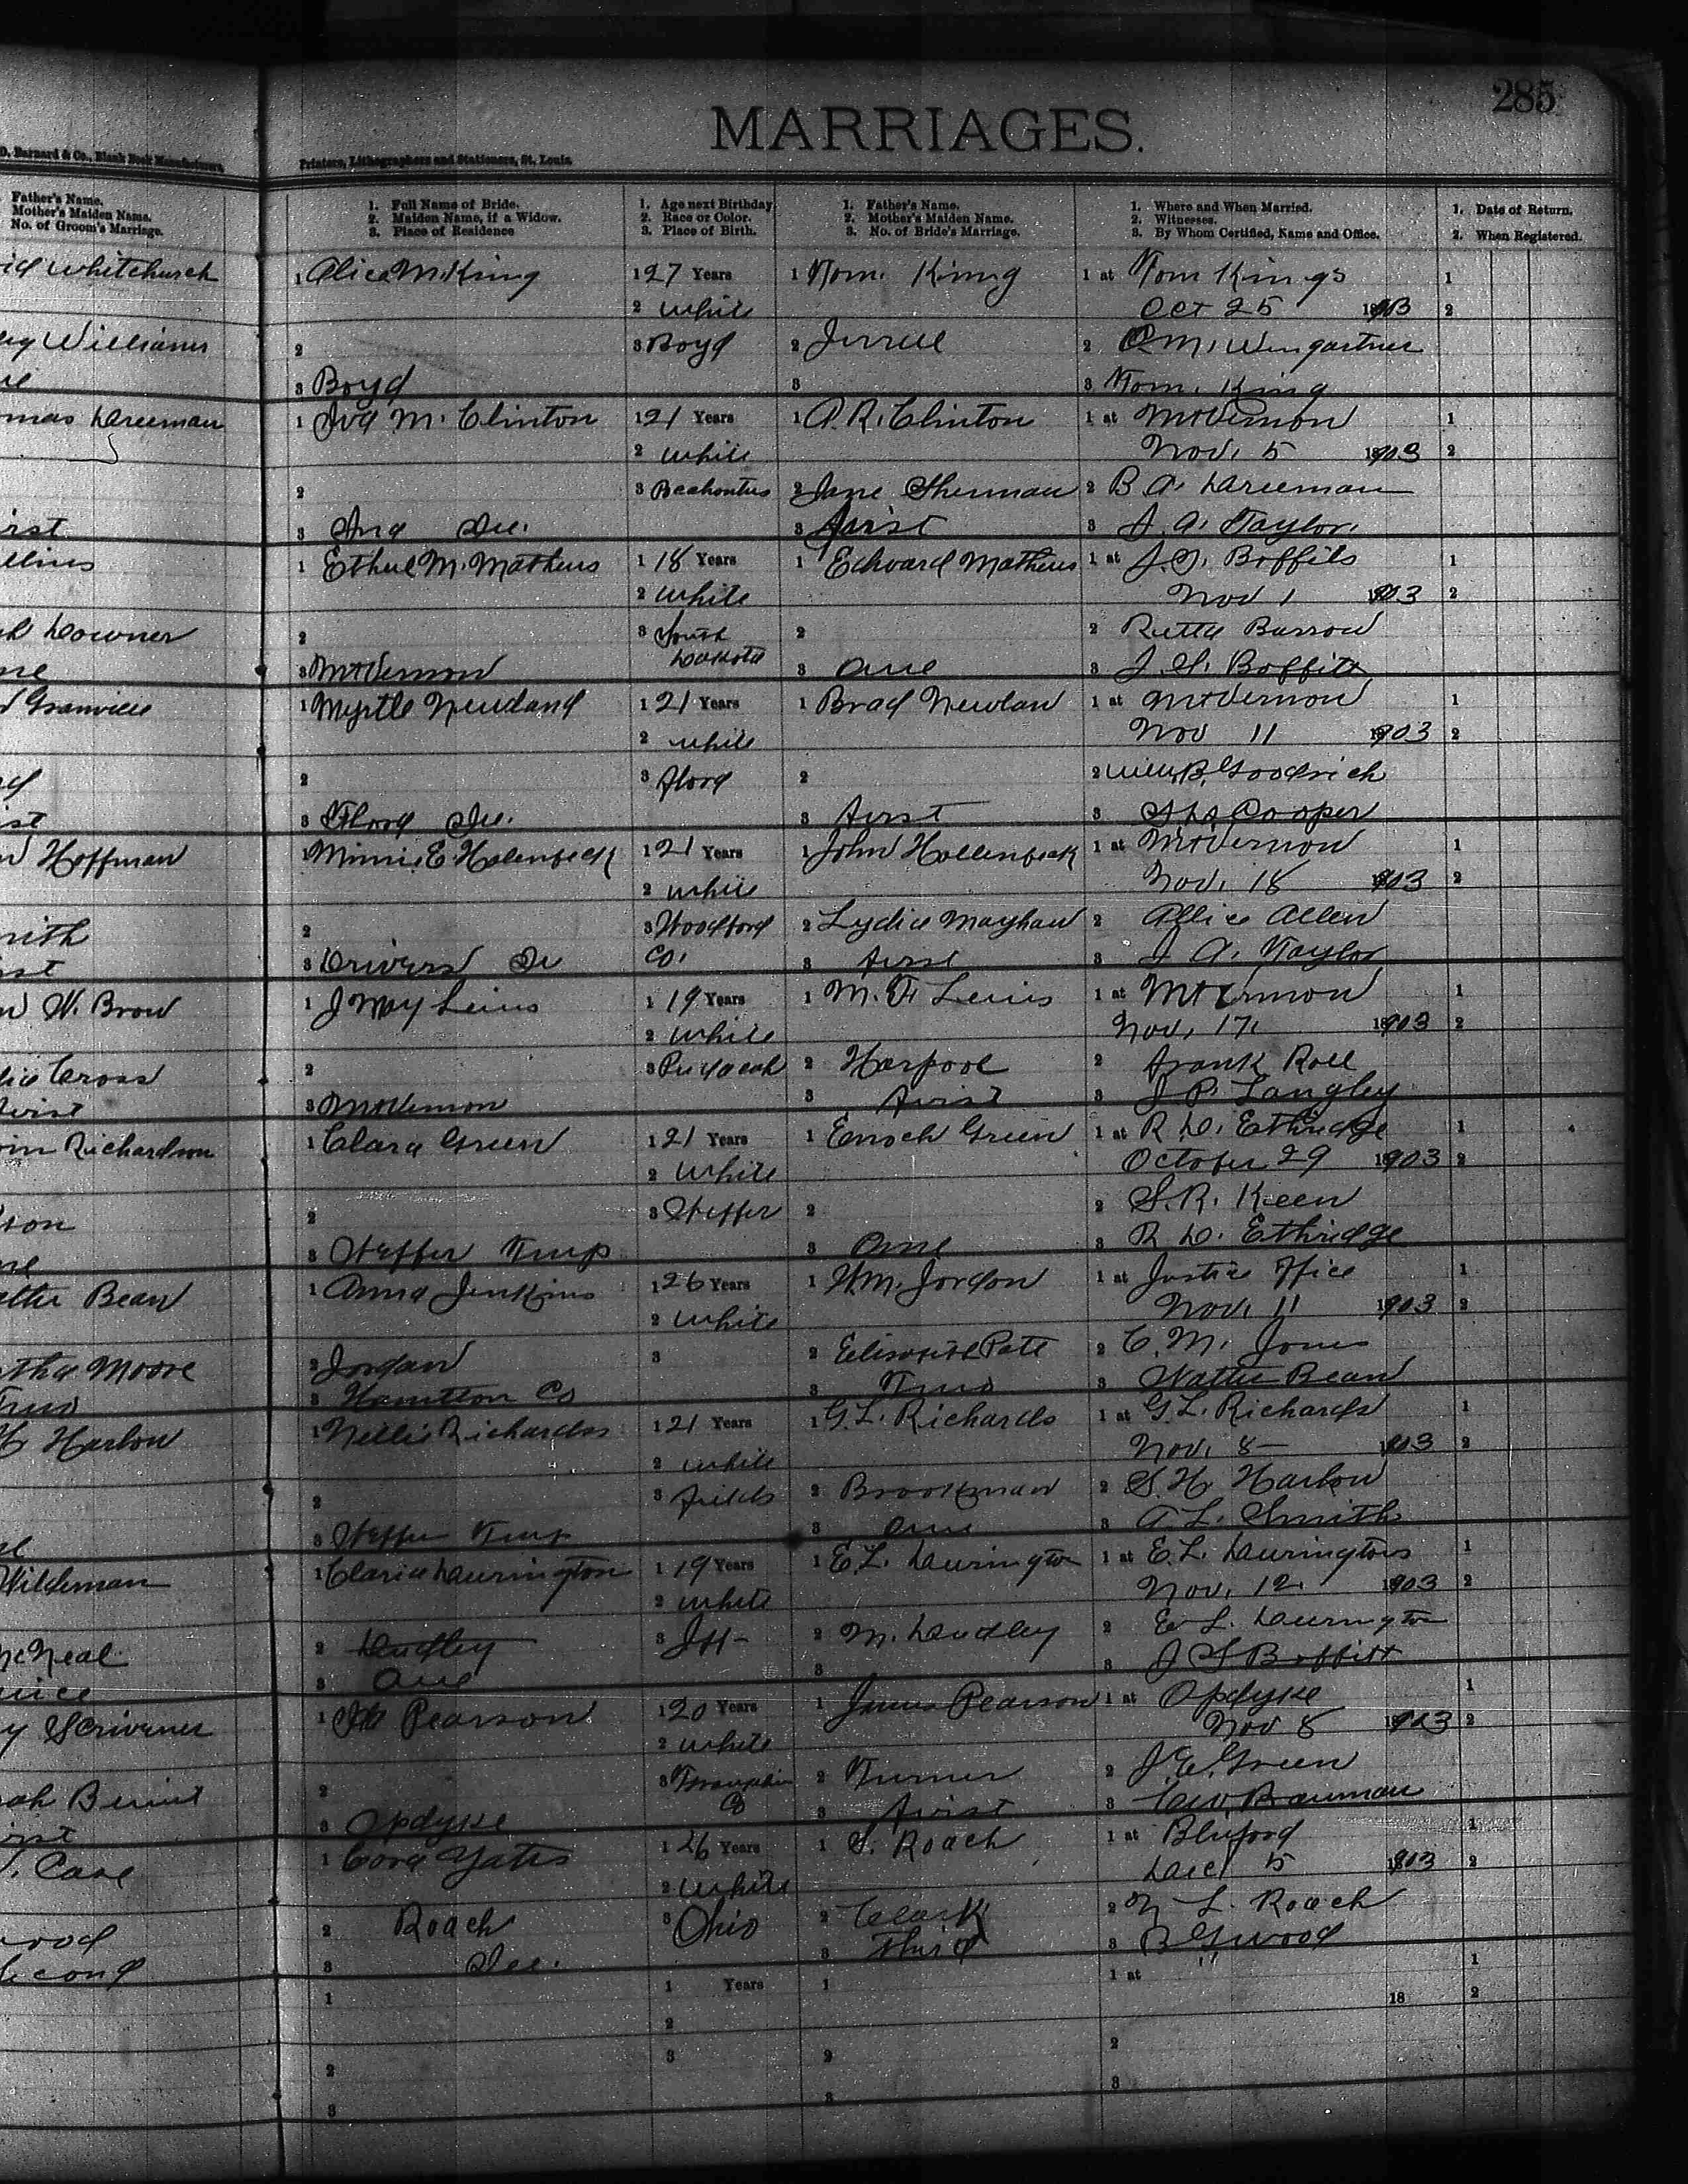 285
MARRIAGES.
D. Barnard & Co., Blank Book Manufacturers,
Printers, Lithographers and Stationers, St. Louis.
Father's Name.
Mother's Maiden Name.
No. of Groom's Marriage.
1. Full Name of Bride.
2. Maiden Name, if a Widow.
3. Place of Residence
1. Age next Birthday
2. Race or Color.
3. Place of Birth.
1. Father's Name.
2. Mother's Maiden Name.
3. No. of Bride's Marriage.
1. Where and When Married.
2. Witnesses.
3. By Whom Certified, Name and Office.
1. Date of Return.
2. When Registered.
Whitchurch 1 Alice M King 1 27 Years 1 Tom. King 1 at Tom Kings 1
2 White Oct 25 1903 2
Williams 2 3 Boyd 2 Jerrell 2 C. M. Wingartner
3 Boyd 3 3 Tom. King
omas 1 Iva M. Clinton 1 21 Years 1 A. R. Clinton 1 at Mt Vernon 1
2 White Nov. 5 1903 2
2 3 2 Jane Sherman 2 B A.
irst 3 Ina Ill. 3 First 3 J. A. Taylor.
llins 1 Ethel M. Mathews 1 18 Years 1 Edward Mathews 1 at J. S. Boffits 1
2 White Nov 1 1903 2
h Downer 2 3 South 2 2 Burrow
Dakota
ne 3 Mt Vernon 3 One 3 J. S. Boffitt
Granville 1 Myrtle Newland 1 21 Years 1 Brad Newlan 1 at Mt Vernon 1
2 White Nov 11 1903 2
d 2 3 Flord 2 2 B. Goodrich
st 3 Flord Ill. 3 First 3 Cooper
Hoffman 1 Minnie E Holenbeck 1 21 Years 1 John Hollenbeck 1 at Mt Vernon 1
2 White Nov. 18 1903 2
mith 2 3 Woodford 2 Lydia Mayhaw 2 Allice Allen
st 3 Drivers Ill Co. 3 First 3 J A. Taylor
n W. Brow 1 J May Lewis 1 19 Years 1 M. F. Lewis 1 at Mt Vernon 1
2 White Nov. 17. 1903 2
Cross 2 3 2 Harpool 2 Frank Roll
First 3 Mt Vernon 3 First 3 J. P. Langley
Richardson 1 Clara Green 1 21 Years 1 Enoch Green 1 at R D. Ethridge 1
2 White October 29 1903 2
son 2 3 Steffer 2 2 S. R. Keen
ne 3 Steffer Twp 3 One 3 R D. Ethridge
Bean 1 Anna Jenkins 1 26 Years 1 Wm. Jordon 1 at Justice Office 1
2 White Nov. 11 1903 2
tha Moore 2 Jordan 3 2 Pate 2 C. M. Jones
Two 3 Hamilton Co 3 Two 3 Walter Bean
Harlow 1 Nellie Richards 1 21 Years 1 G. L. Richards 1 at G. L. Richards 1
2 White Nov. 8 1903 2
2 3 Fields 2 Brookman 2 S. H Harlow
3 Twp 3 One 3 A. L. Smith
Wildeman 1 Daurington 1 19 Years 1 E. L. Daurington 1 at E. L. Dauringtons 1
2 White Nov. 12. 1903 2
McNeal 2 Dudley 3 Ill 2 M. Dudley 2 E L. Daurington
3 One 3 3 J S Boffitt
Scrivener 1 Pearson 1 20 Years 1 James Pearson 1 at Opdyke 1
2 White Nov 8 1903 2
2 3 Franklin 2 Turner 2 J. E. Green
Co
irst 3 Opdyke 3 First 3 Bauman
Case 1 Cora Yates 1 26 Years 1 S. Roach 1 at Bluford 1
2 White Dec 5 1903 2
wood 2 Roach 3 Ohio 2 Clark 2 L. Roach
Second 3 Ill. 3 Third 3 Wood
1 1 Years 1 1 at 1
2 18 2
2 3 2 2
3 3 3